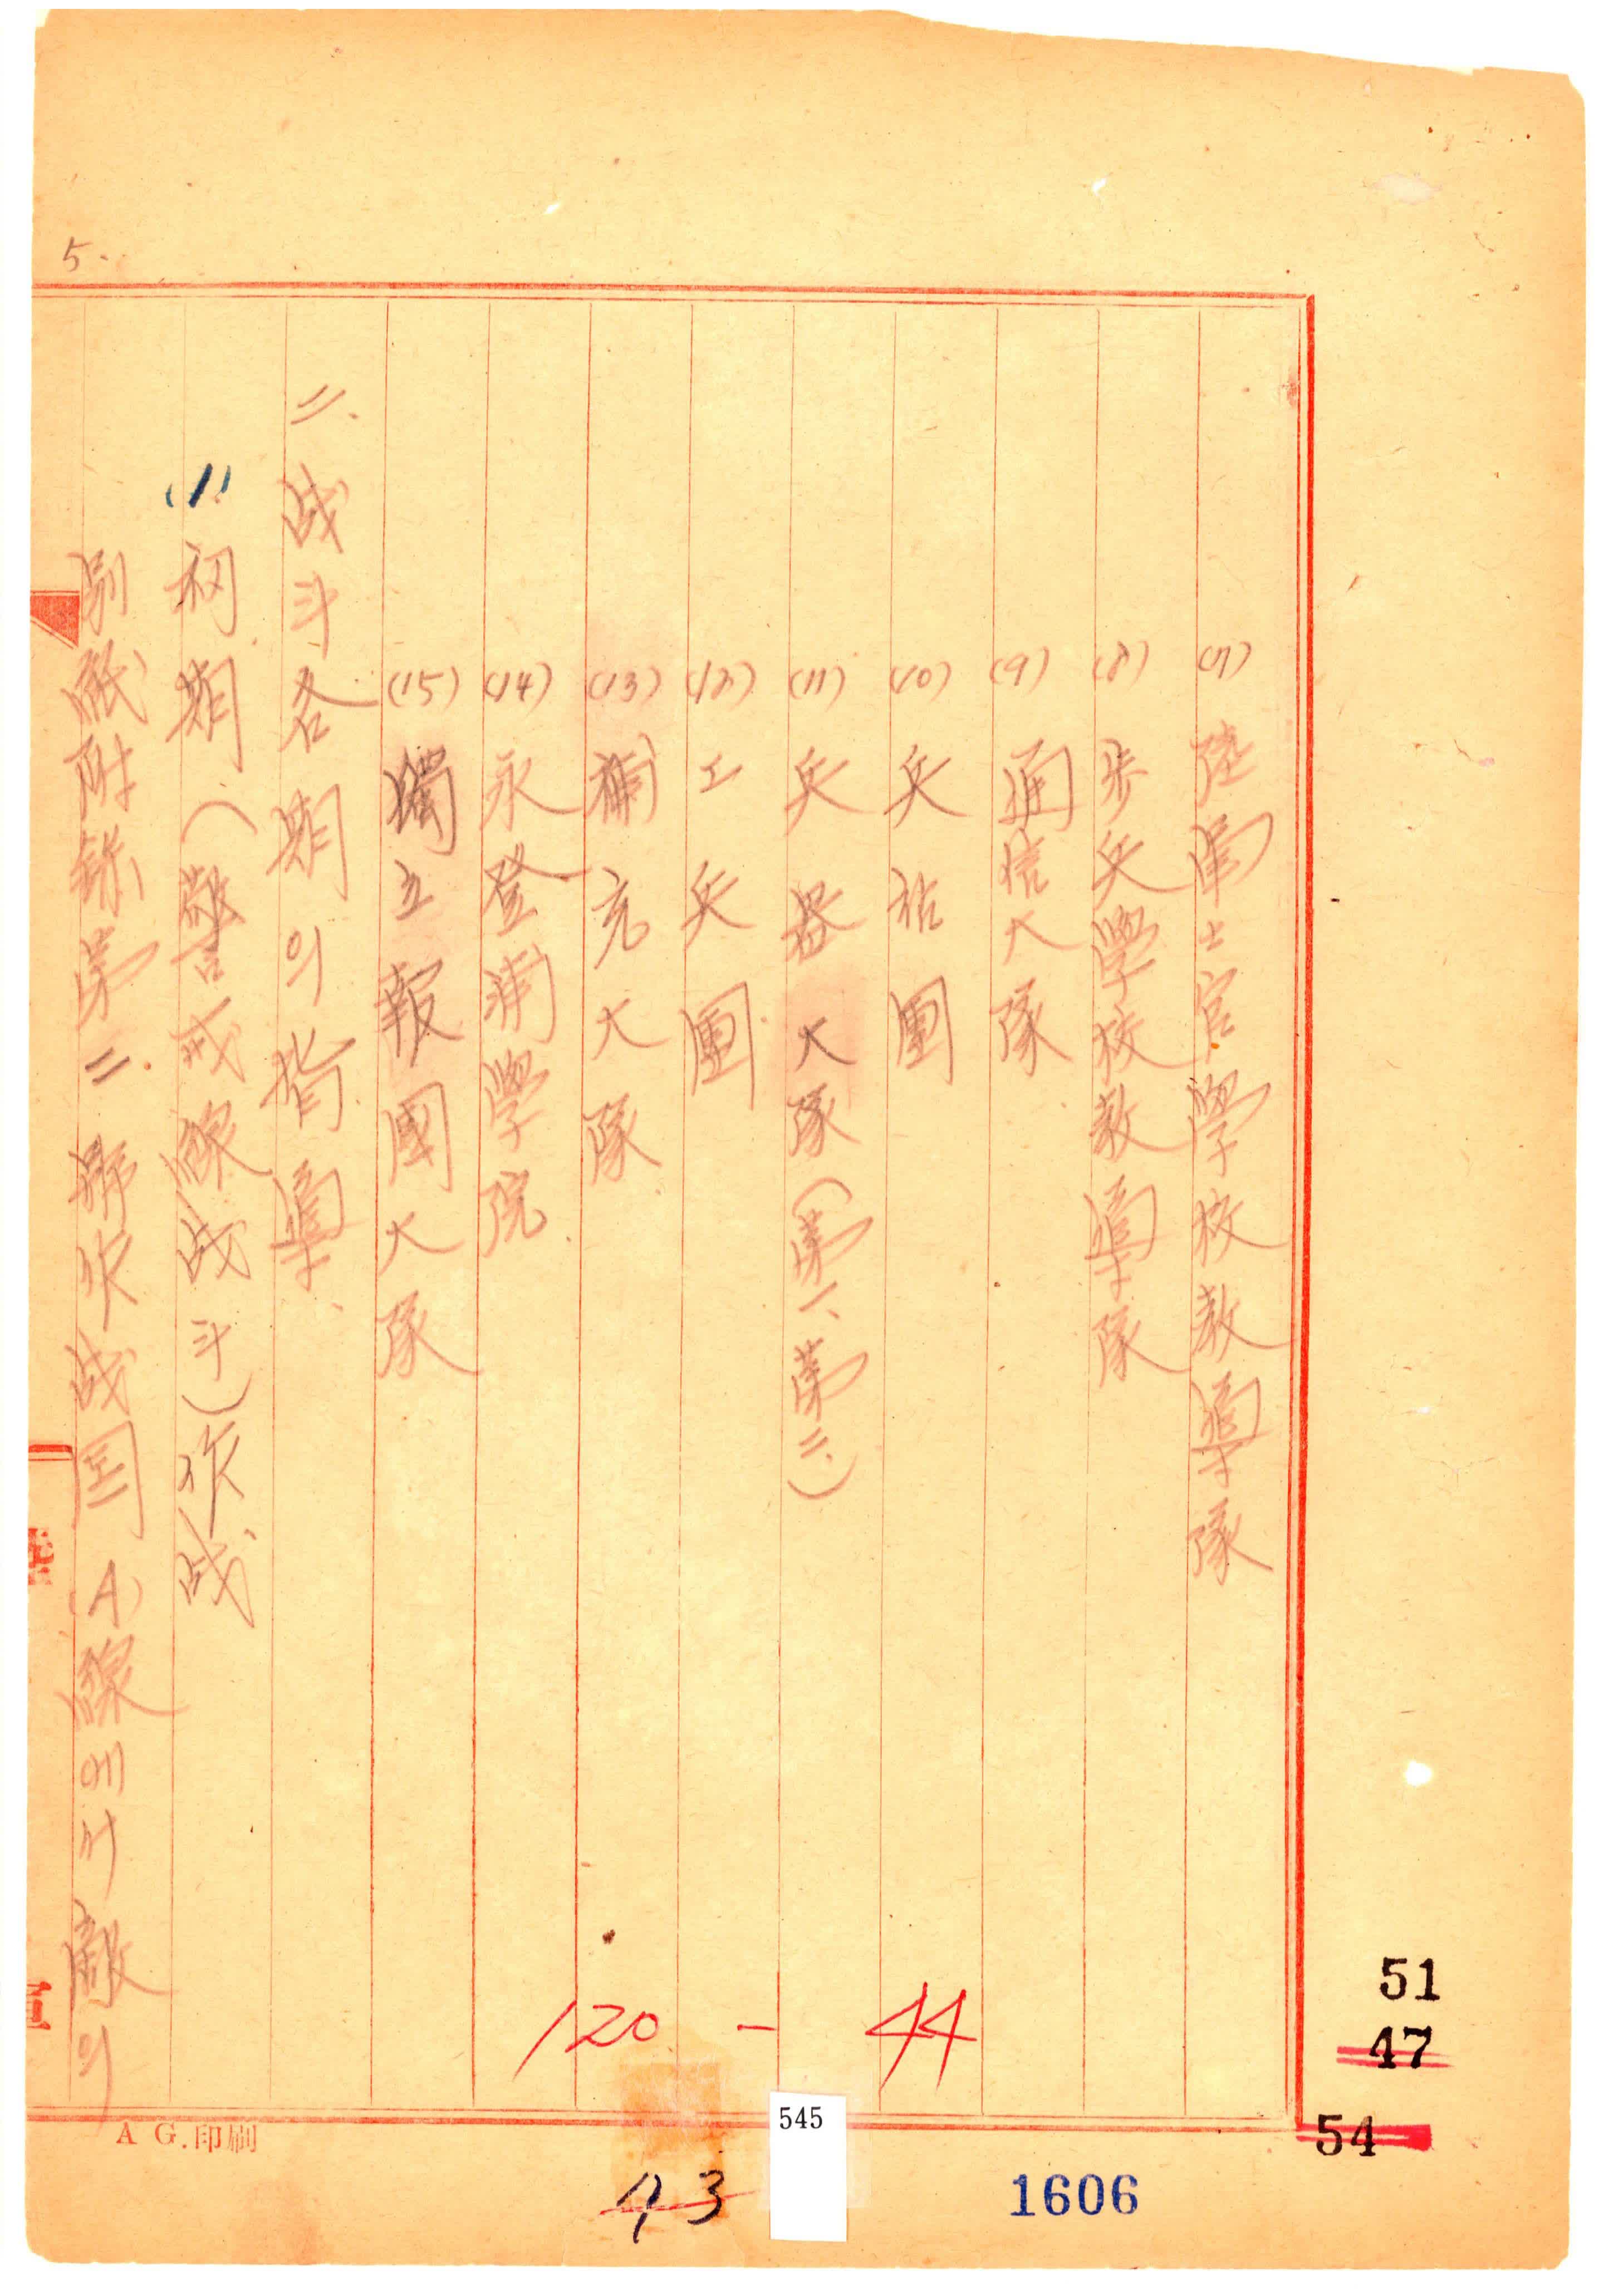 5.
(7) 陸軍士官學校教導隊
(8) 步兵學校教導隊
(9) 通信大隊
(10) 兵站團
(11) 兵器大隊(第一、第二)
(12) 工兵團
(13) 補充大隊
(14) 永登浦學院
(15) 獨立報國大隊
二、战斗各期의指導
(1) 初期(警戒線战斗)作战
別紙附錄第二 작战图(A)線에서敵의
120 - 44
51
47
54
545
43
1606
A G.印刷